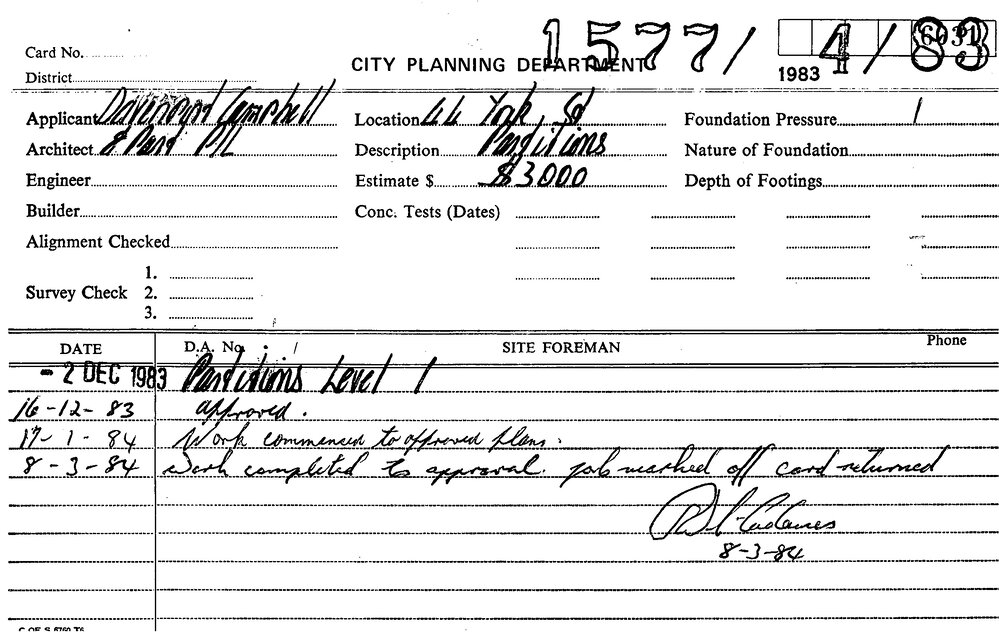 1577/4/83
6031
Card No.
CITY PLANNING DEPARTMENT
1983
District
Applicant Davenport Campbell
Location 44 York St
Foundation Pressure
Architect & Part P/L
Description Partitions
Nature of Foundation
Engineer
Estimate $ $3000
Depth of Footings
Builder
Conc. Tests (Dates)
Alignment Checked
1.
Survey Check 2.
3.
DATE D.A. No. / SITE FOREMAN Phone
- 2 DEC 1983 Partitions Level 1
16-12-83 approved.
17-1-84 Work commenced to approved plans.
8-3-84 Work completed to approval. job marked off card returned
8-3-84
C OF S 5760 T6